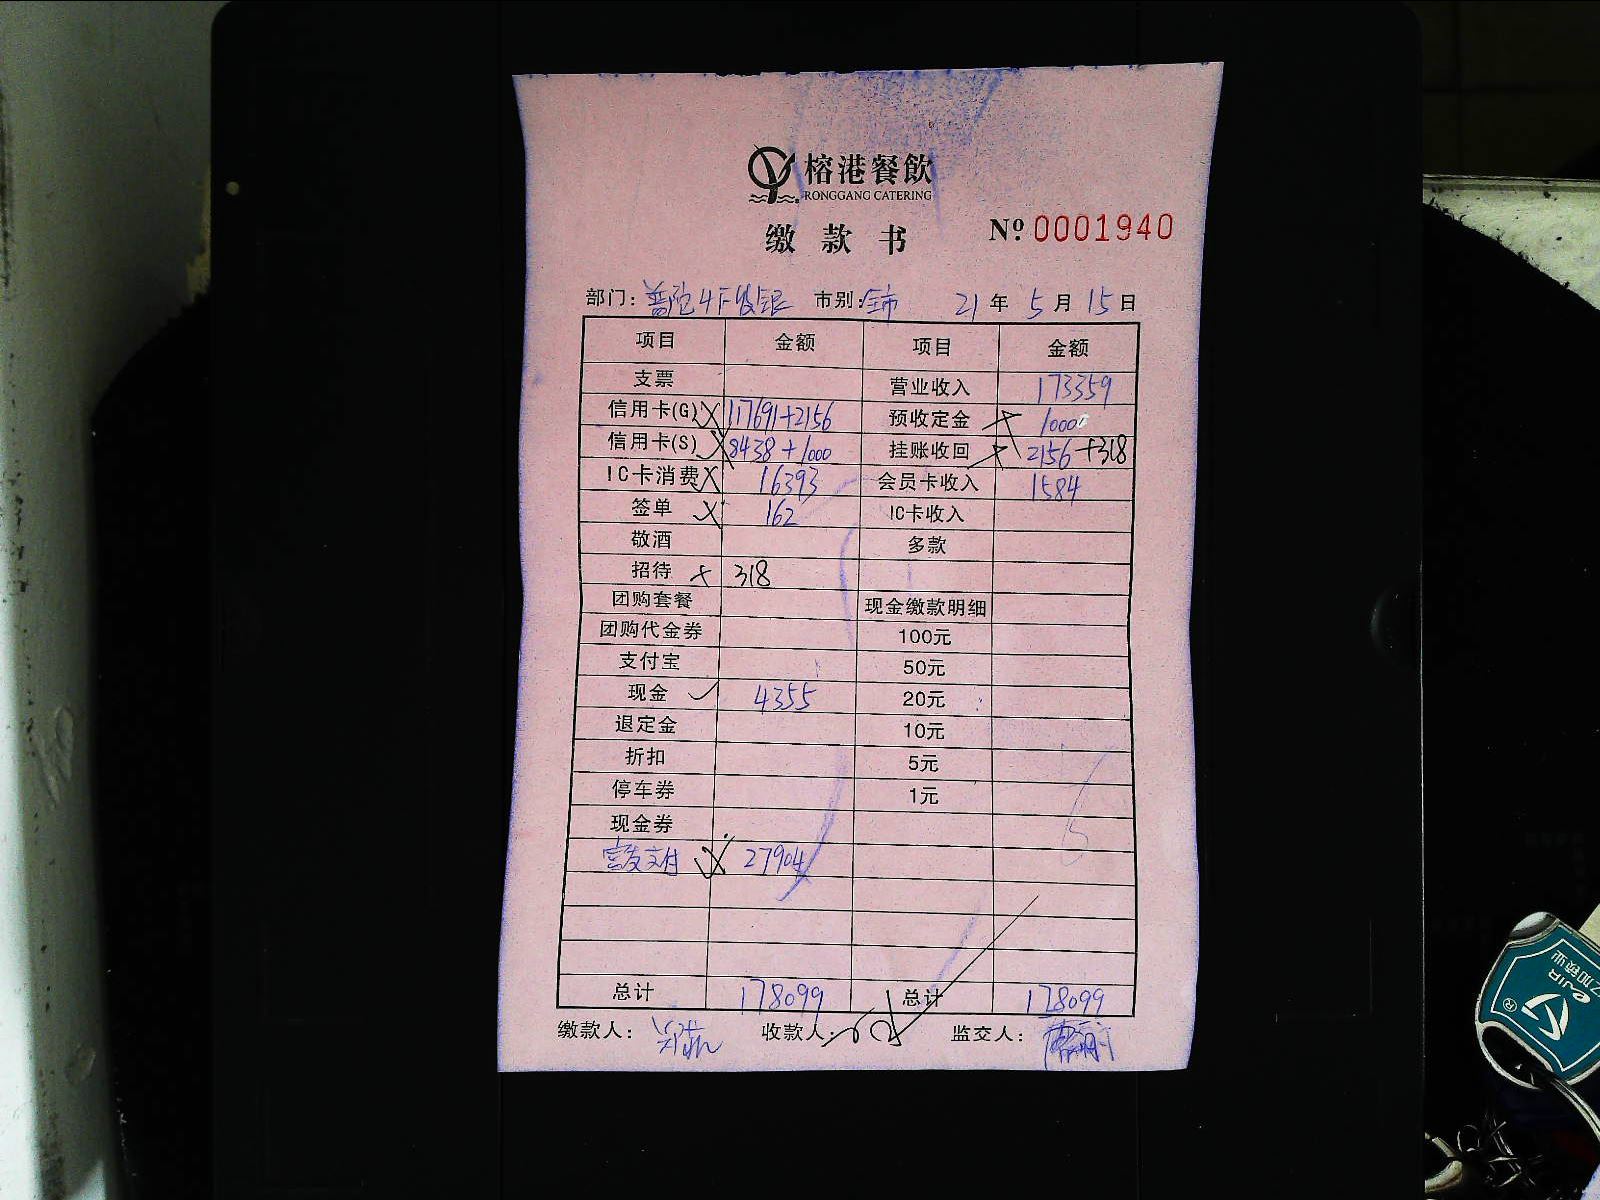 榕港餐飲
RONGGANG CATERING
缴款书
№ 0001940
部门: 普陀4F收银 市别: 全市 21 年 5 月 15 日
项目 金额 项目 金额
支票 营业收入 173359
信用卡(G) 117691+2156 预收定金 1000
信用卡(S) 8438+1000 挂账收回 2156+318
IC卡消费 16393 会员卡收入 1584
签单 162 IC卡收入
敬酒 多款
招待 318
团购套餐 现金缴款明细
团购代金券 100元
支付宝 50元
现金 4355 20元
退定金 10元
折扣 5元
停车券 1元
现金券
支付 27904
总计 178099 总计 178099
缴款人: 收款人: 监交人:
eJIR
亿加锁业